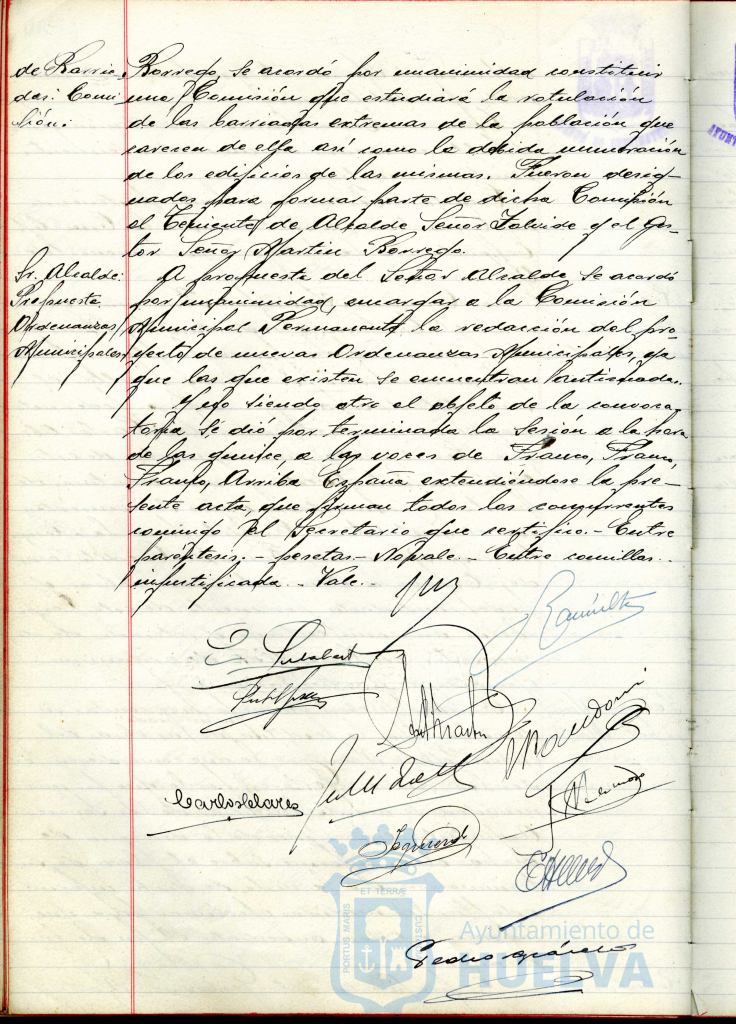 de Barria
das: Comi
sión:
Borrego, se acordó por unanimidad constituir
una Comisión que estudiará la rotulación
de las barriadas extremas de la población que
carecen de ella así como la debida numeración
de los edificios de las mismas. Fueron desig-
nados para formar parte de dicha Comisión
el Teniente de Alcalde Señor y el Ges-
tor Señor Martin Borrego.
Sr. Alcalde:
Propuesta
Ordenanzas
Municipales.
A propuesta del Señor Alcalde se acordó
por unanimidad, encargar a la Comisión
Municipal Permanente la redacción del pro-
yecto de nuevas Ordenanzas Municipales, ya
que las que existen se encuentran anticuadas.
Y no siendo otro el objeto de la convoca-
toria se dió por terminada la sesión a la hora
de las quince, a las voces de Franco, Franco,
Franco, Arriba España extendiéndose la pre-
sente acta, que firman todos los concurrentes
conmigo el Secretario que certifico.- Entre
paréntesis.- pesetas- No vale.- Entre comillas..
injustificada.. Vale.-
Carlos
Izquierdo
Pedro
PORTUS MARIS
ET TERRÆ
CUSTODIA
Ayuntamiento de
HUELVA